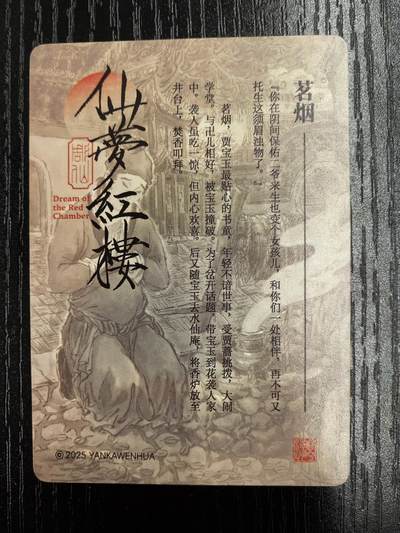 茗烟
『你在阴间保佑二爷来生也变个女孩儿，和你们一处相伴，再不可又
托生这须眉浊物了。』
茗烟，贾宝玉最贴心的书童。年轻不谙世事，受贾蔷挑拨，大闹
学堂。与卍儿相好，被宝玉撞破。为了岔开话题，带宝玉到花袭人家
中。袭人虽吃一惊，但内心欢喜。后又随宝玉去水仙庵，将香炉放至
井台上，焚香叩拜。
仙夢紅樓
Dream of
the Red
Chamber
©2025 YANKAWENHUA